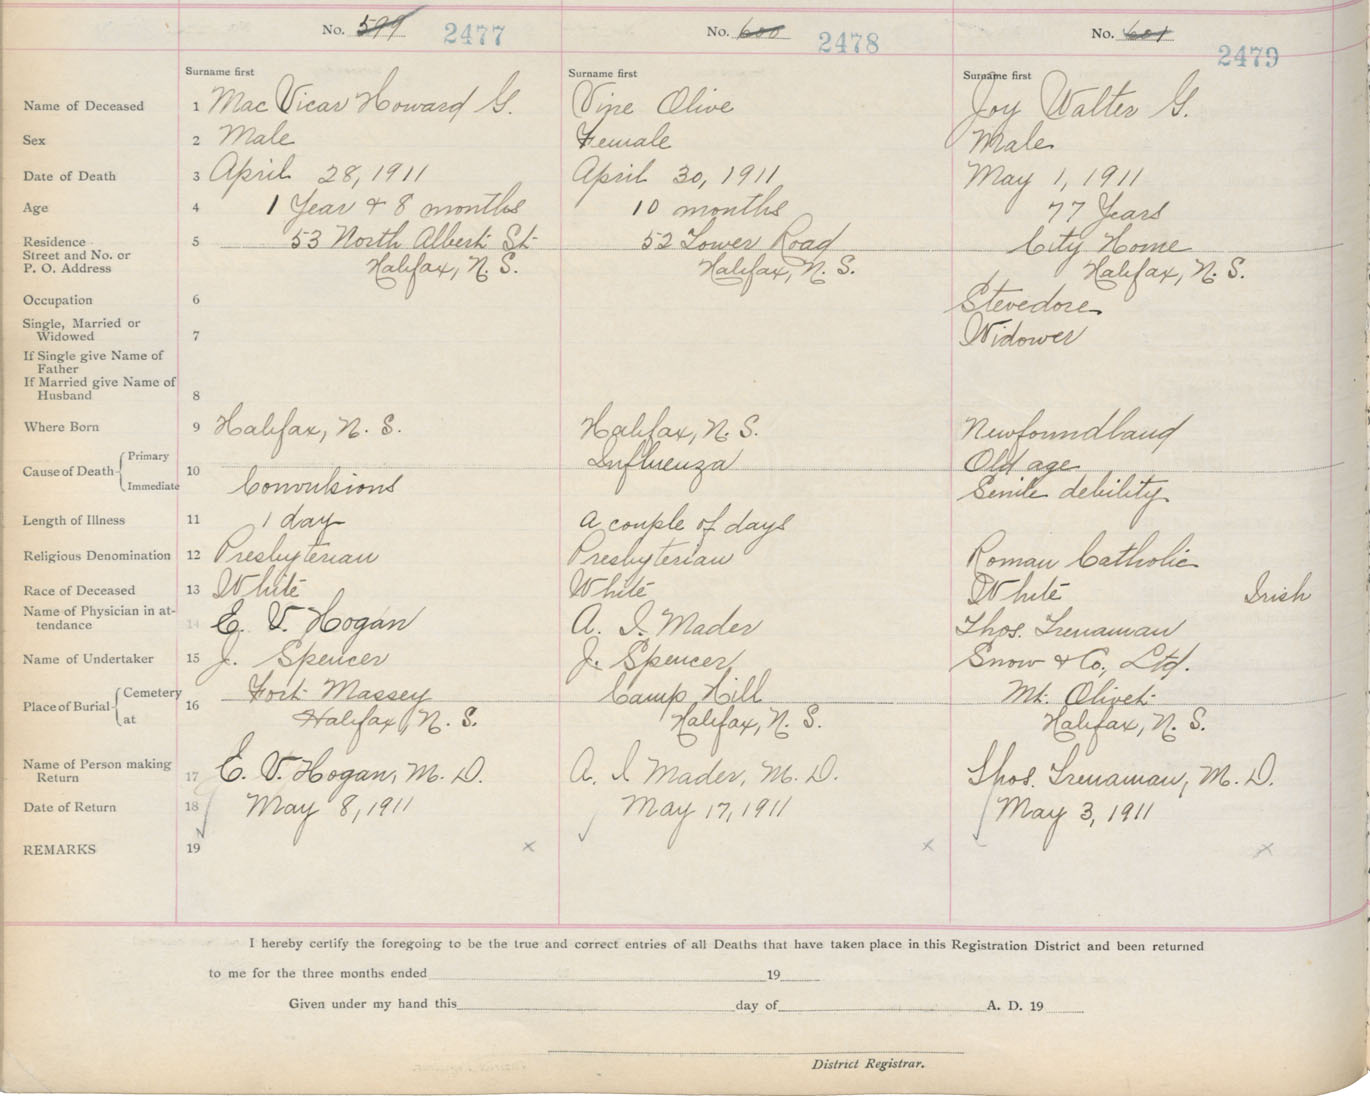 No. 599 2477 No. 600 2478 No. 601 2479
Surname first Surname first Surname first
Name of Deceased 1 Mac Vicar Howard G. Vine Olive Joy Walter G.
Sex 2 Male Female Male
Date of Death 3 April 28, 1911 April 30, 1911 May 1, 1911
Age 4 1 Year & 8 months 10 months 77 Years
Residence 5 53 North Albert St. 52 Lower Road City Home
Street and No. or
P. O. Address Halifax, N. S. Halifax, N. S. Halifax, N. S.
Occupation 6 Stevedore
Single, Married or
Widowed 7 Widower
If Single give Name of
Father
If Married give Name of
Husband 8
Where Born 9 Halifax, N. S. Halifax, N. S. Newfoundland
Cause of Death Primary 10 Influenza Old age
Immediate Convulsions Senile debility
Length of Illness 11 1 day A couple of days
Religious Denomination 12 Presbyterian Presbyterian Roman Catholic
Race of Deceased 13 White White White Irish
Name of Physician in at-
tendance 14 E. V. Hogan A. I. Mader Thos. Trenaman
Name of Undertaker 15 J. Spencer J. Spencer Snow & Co., Ltd.
Place of Burial Cemetery 16 Fort Massey Camp Hill Mt. Olivet
at Halifax, N. S. Halifax, N. S. Halifax, N. S.
Name of Person making
Return 17 E. V. Hogan, M. D. A. I Mader, M. D. Thos. Trenaman, M. D.
Date of Return 18 May 8, 1911 May 17, 1911 May 3, 1911
REMARKS 19 x x x
I hereby certify the foregoing to be the true and correct entries of all Deaths that have taken place in this Registration District and been returned
to me for the three months ended 19
Given under my hand this day of A. D. 19
District Registrar.